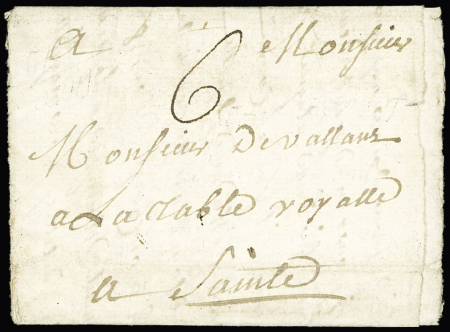 A Monsieur
6
Monsieur Devallans
a La table royalle
a Sainte